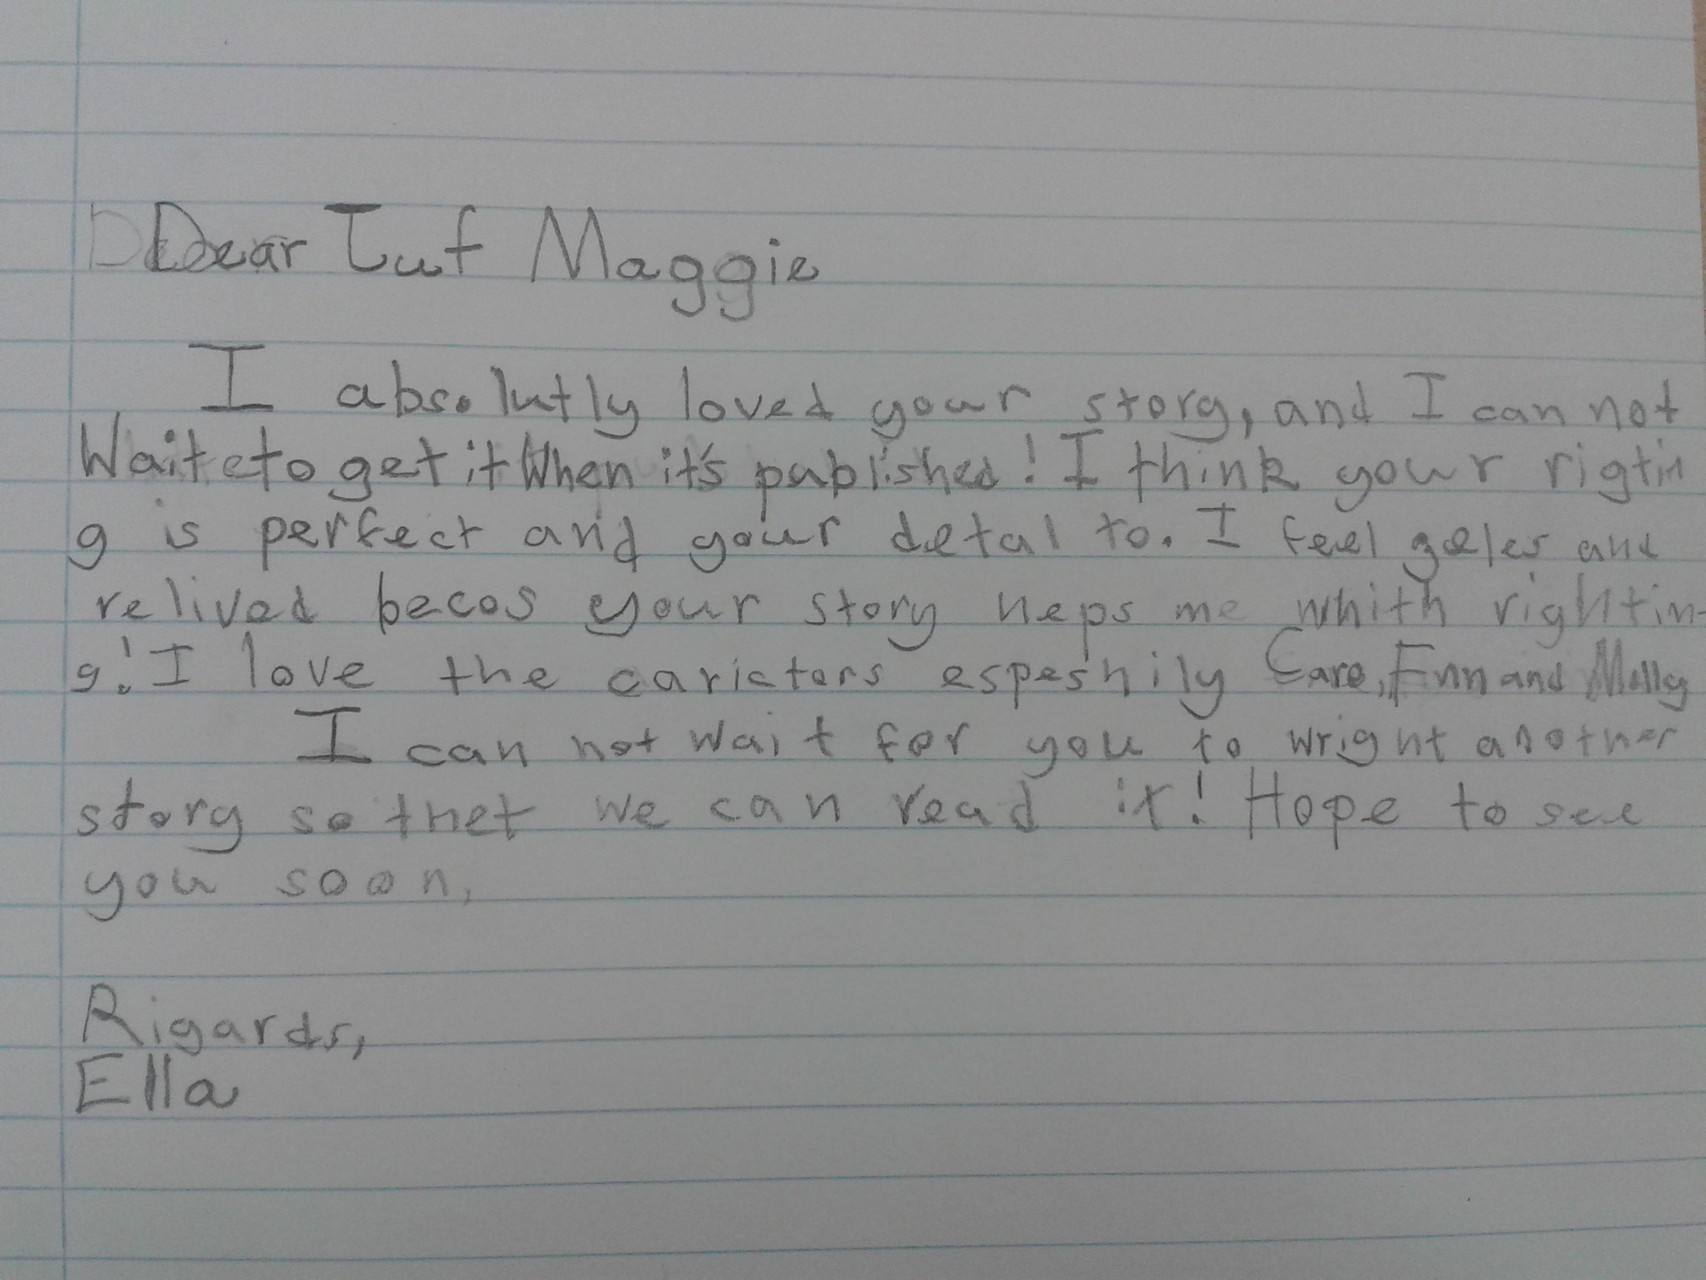 Dear Tuf Maggie
I absolutly loved your story, and I can not
Waite to get it When it's published! I think your rigtin
g is perfect and your detal to. I feel geles and
relived becos your story heps me whith rightin-
g! I love the carictors espeshily Care, Fnn and Molly
I can not wait for you to wright another
story so thet we can read it! Hope to see
you soon,
Rigards,
Ella